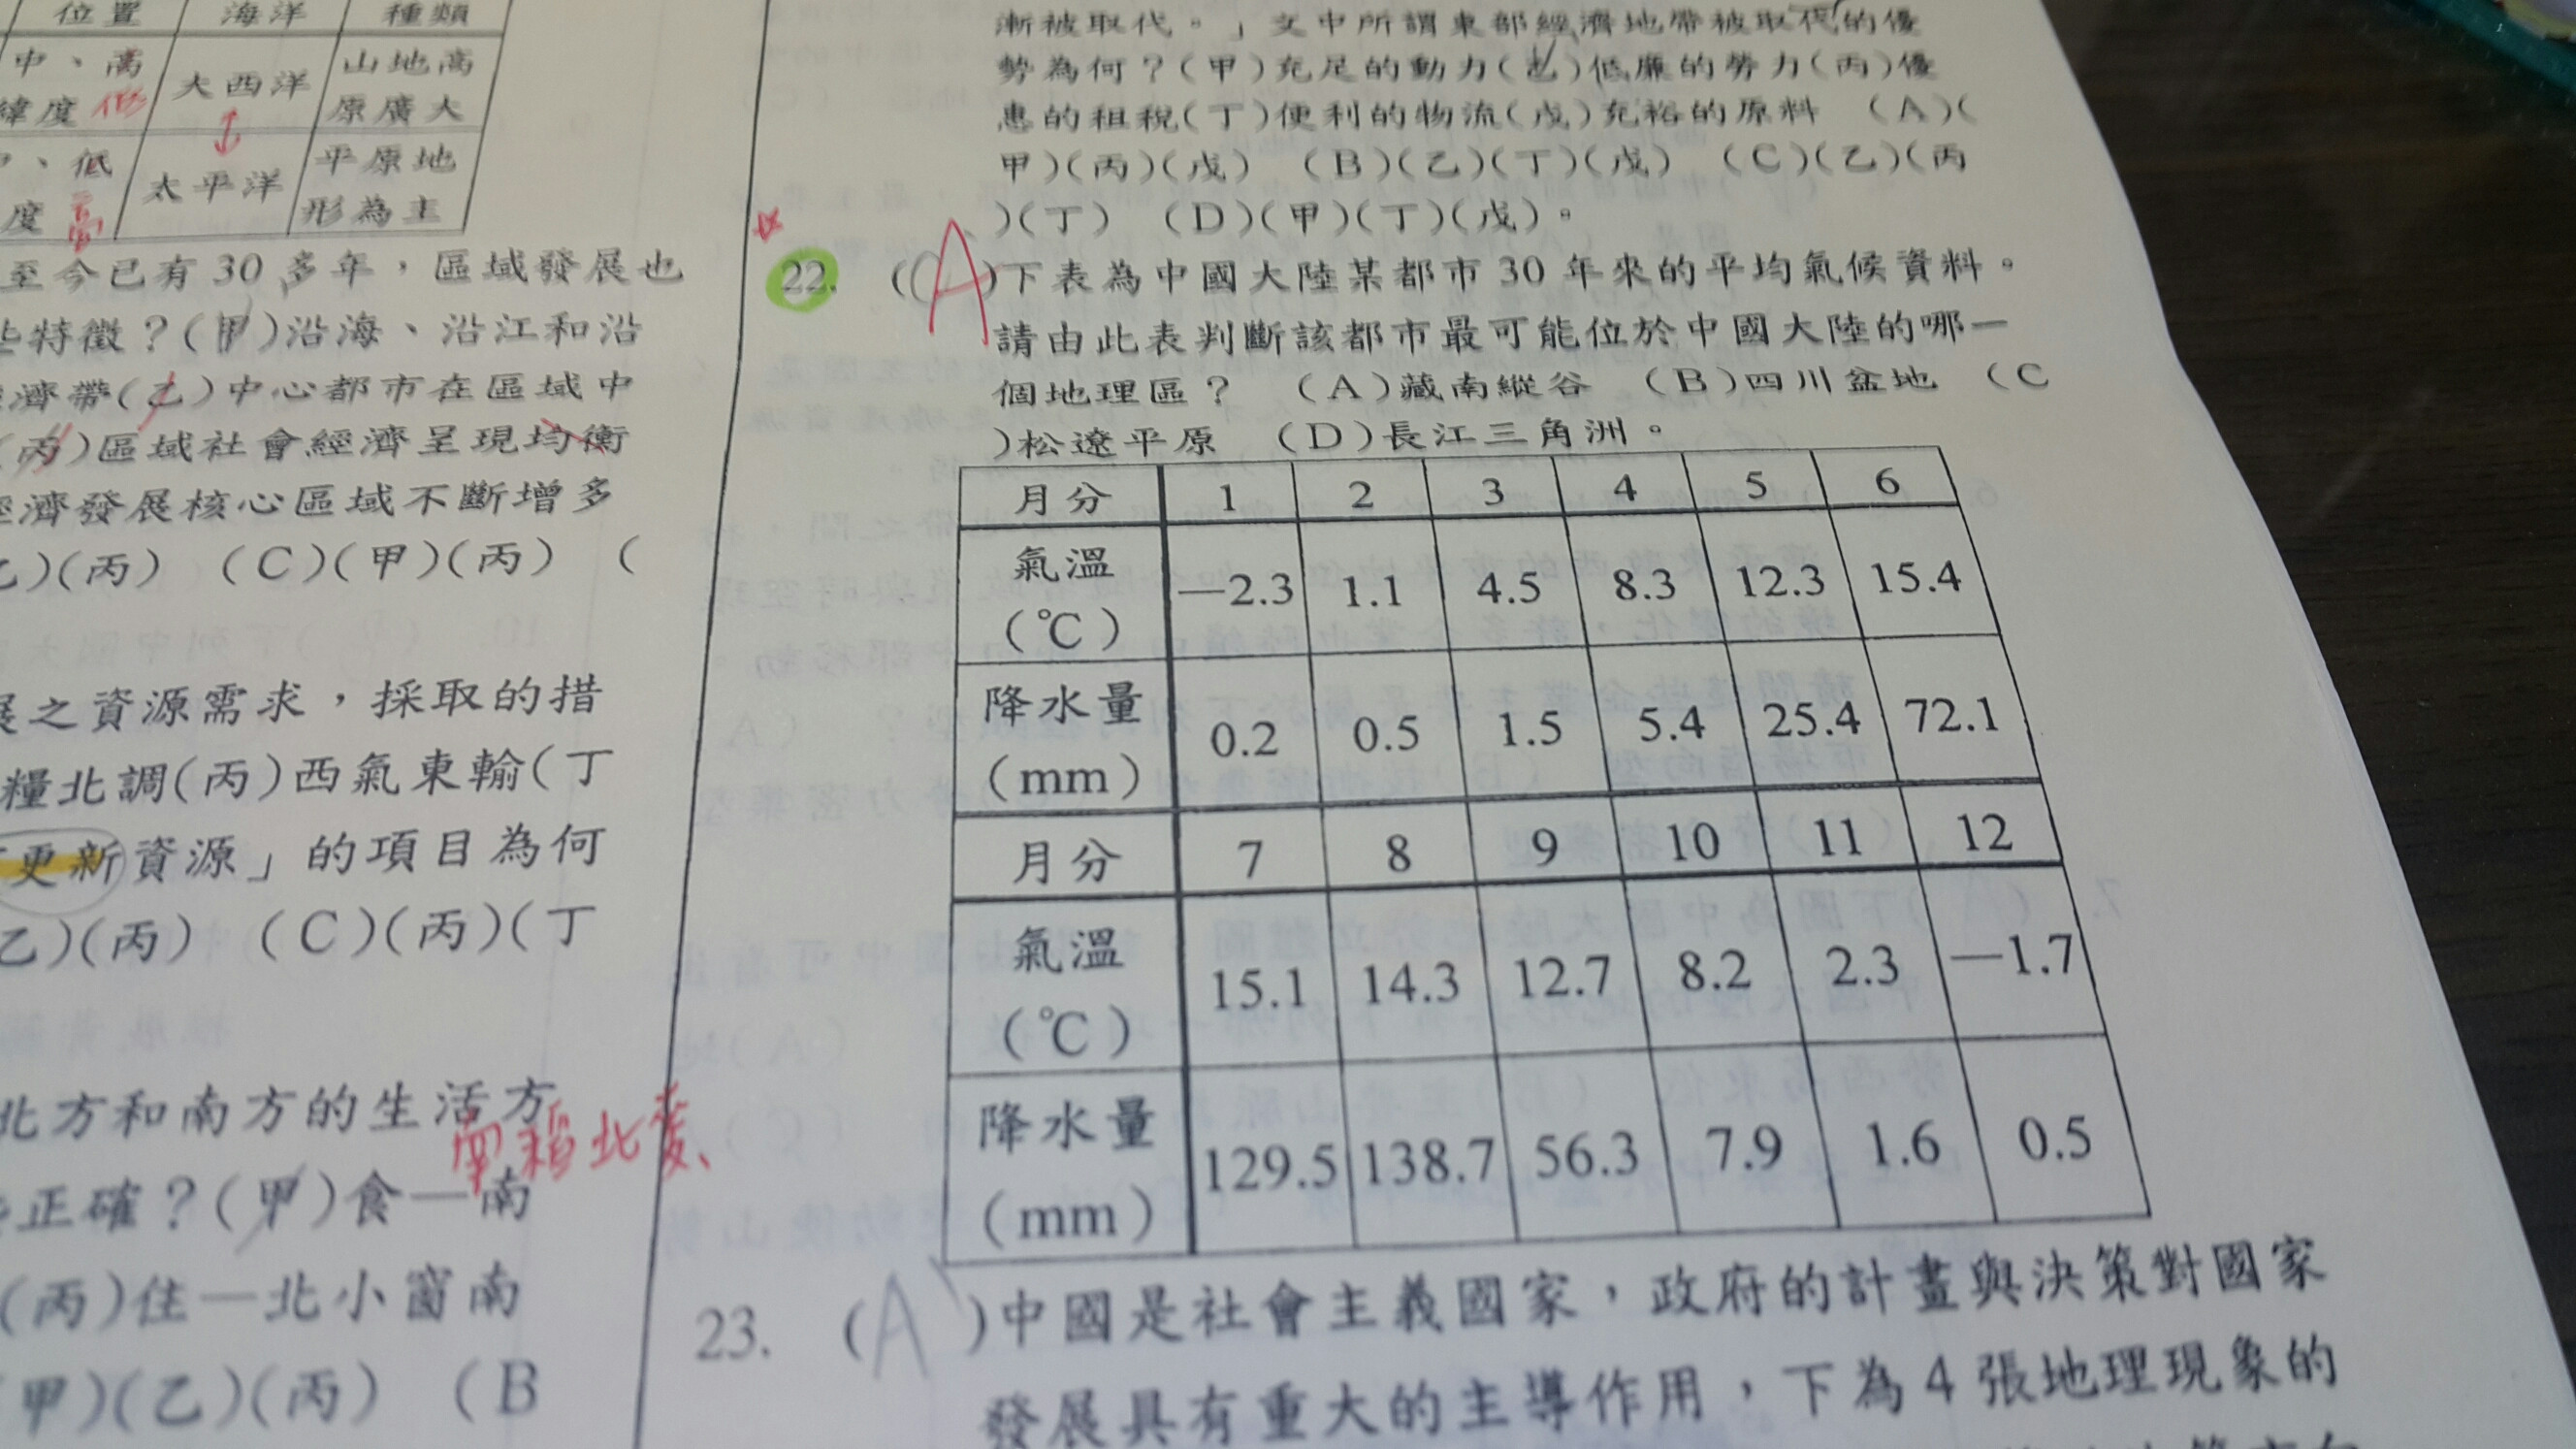 位置 海洋 種類
中、高 大西洋 山地高
緯度 低 原廣大
、低 太平洋 平原地
度 高 形為主
至今已有30多年，區域發展也
些特徵？(甲)沿海、沿江和沿
濟帶(乙)中心都市在區域中
(丙)區域社會經濟呈現均衡
經濟發展核心區域不斷增多
乙)(丙) (C)(甲)(丙) (
展之資源需求，採取的措
糧北調(丙)西氣東輸(丁
更新資源」的項目為何
乙)(丙) (C)(丙)(丁
北方和南方的生活方
南稻北麥、
正確？(甲)食—南
(丙)住—北小窗南
甲)(乙)(丙) (B
漸被取代。」文中所謂東部經濟地帶被取代的優
勢為何？(甲)充足的動力(乙)低廉的勞力(丙)優
惠的租稅(丁)便利的物流(戊)充裕的原料 (A)(
甲)(丙)(戊) (B)(乙)(丁)(戊) (C)(乙)(丙
)(丁) (D)(甲)(丁)(戊)。
22. (A)下表為中國大陸某都市30年來的平均氣候資料。
請由此表判斷該都市最可能位於中國大陸的哪一
個地理區？ (A)藏南縱谷 (B)四川盆地 (C
)松遼平原 (D)長江三角洲。
月分 1 2 3 4 5 6
氣溫
(℃) —2.3 1.1 4.5 8.3 12.3 15.4
降水量
(mm) 0.2 0.5 1.5 5.4 25.4 72.1
月分 7 8 9 10 11 12
氣溫
(℃) 15.1 14.3 12.7 8.2 2.3 —1.7
降水量
(mm) 129.5 138.7 56.3 7.9 1.6 0.5
23. (A)中國是社會主義國家，政府的計畫與決策對國家
發展具有重大的主導作用，下為4張地理現象的